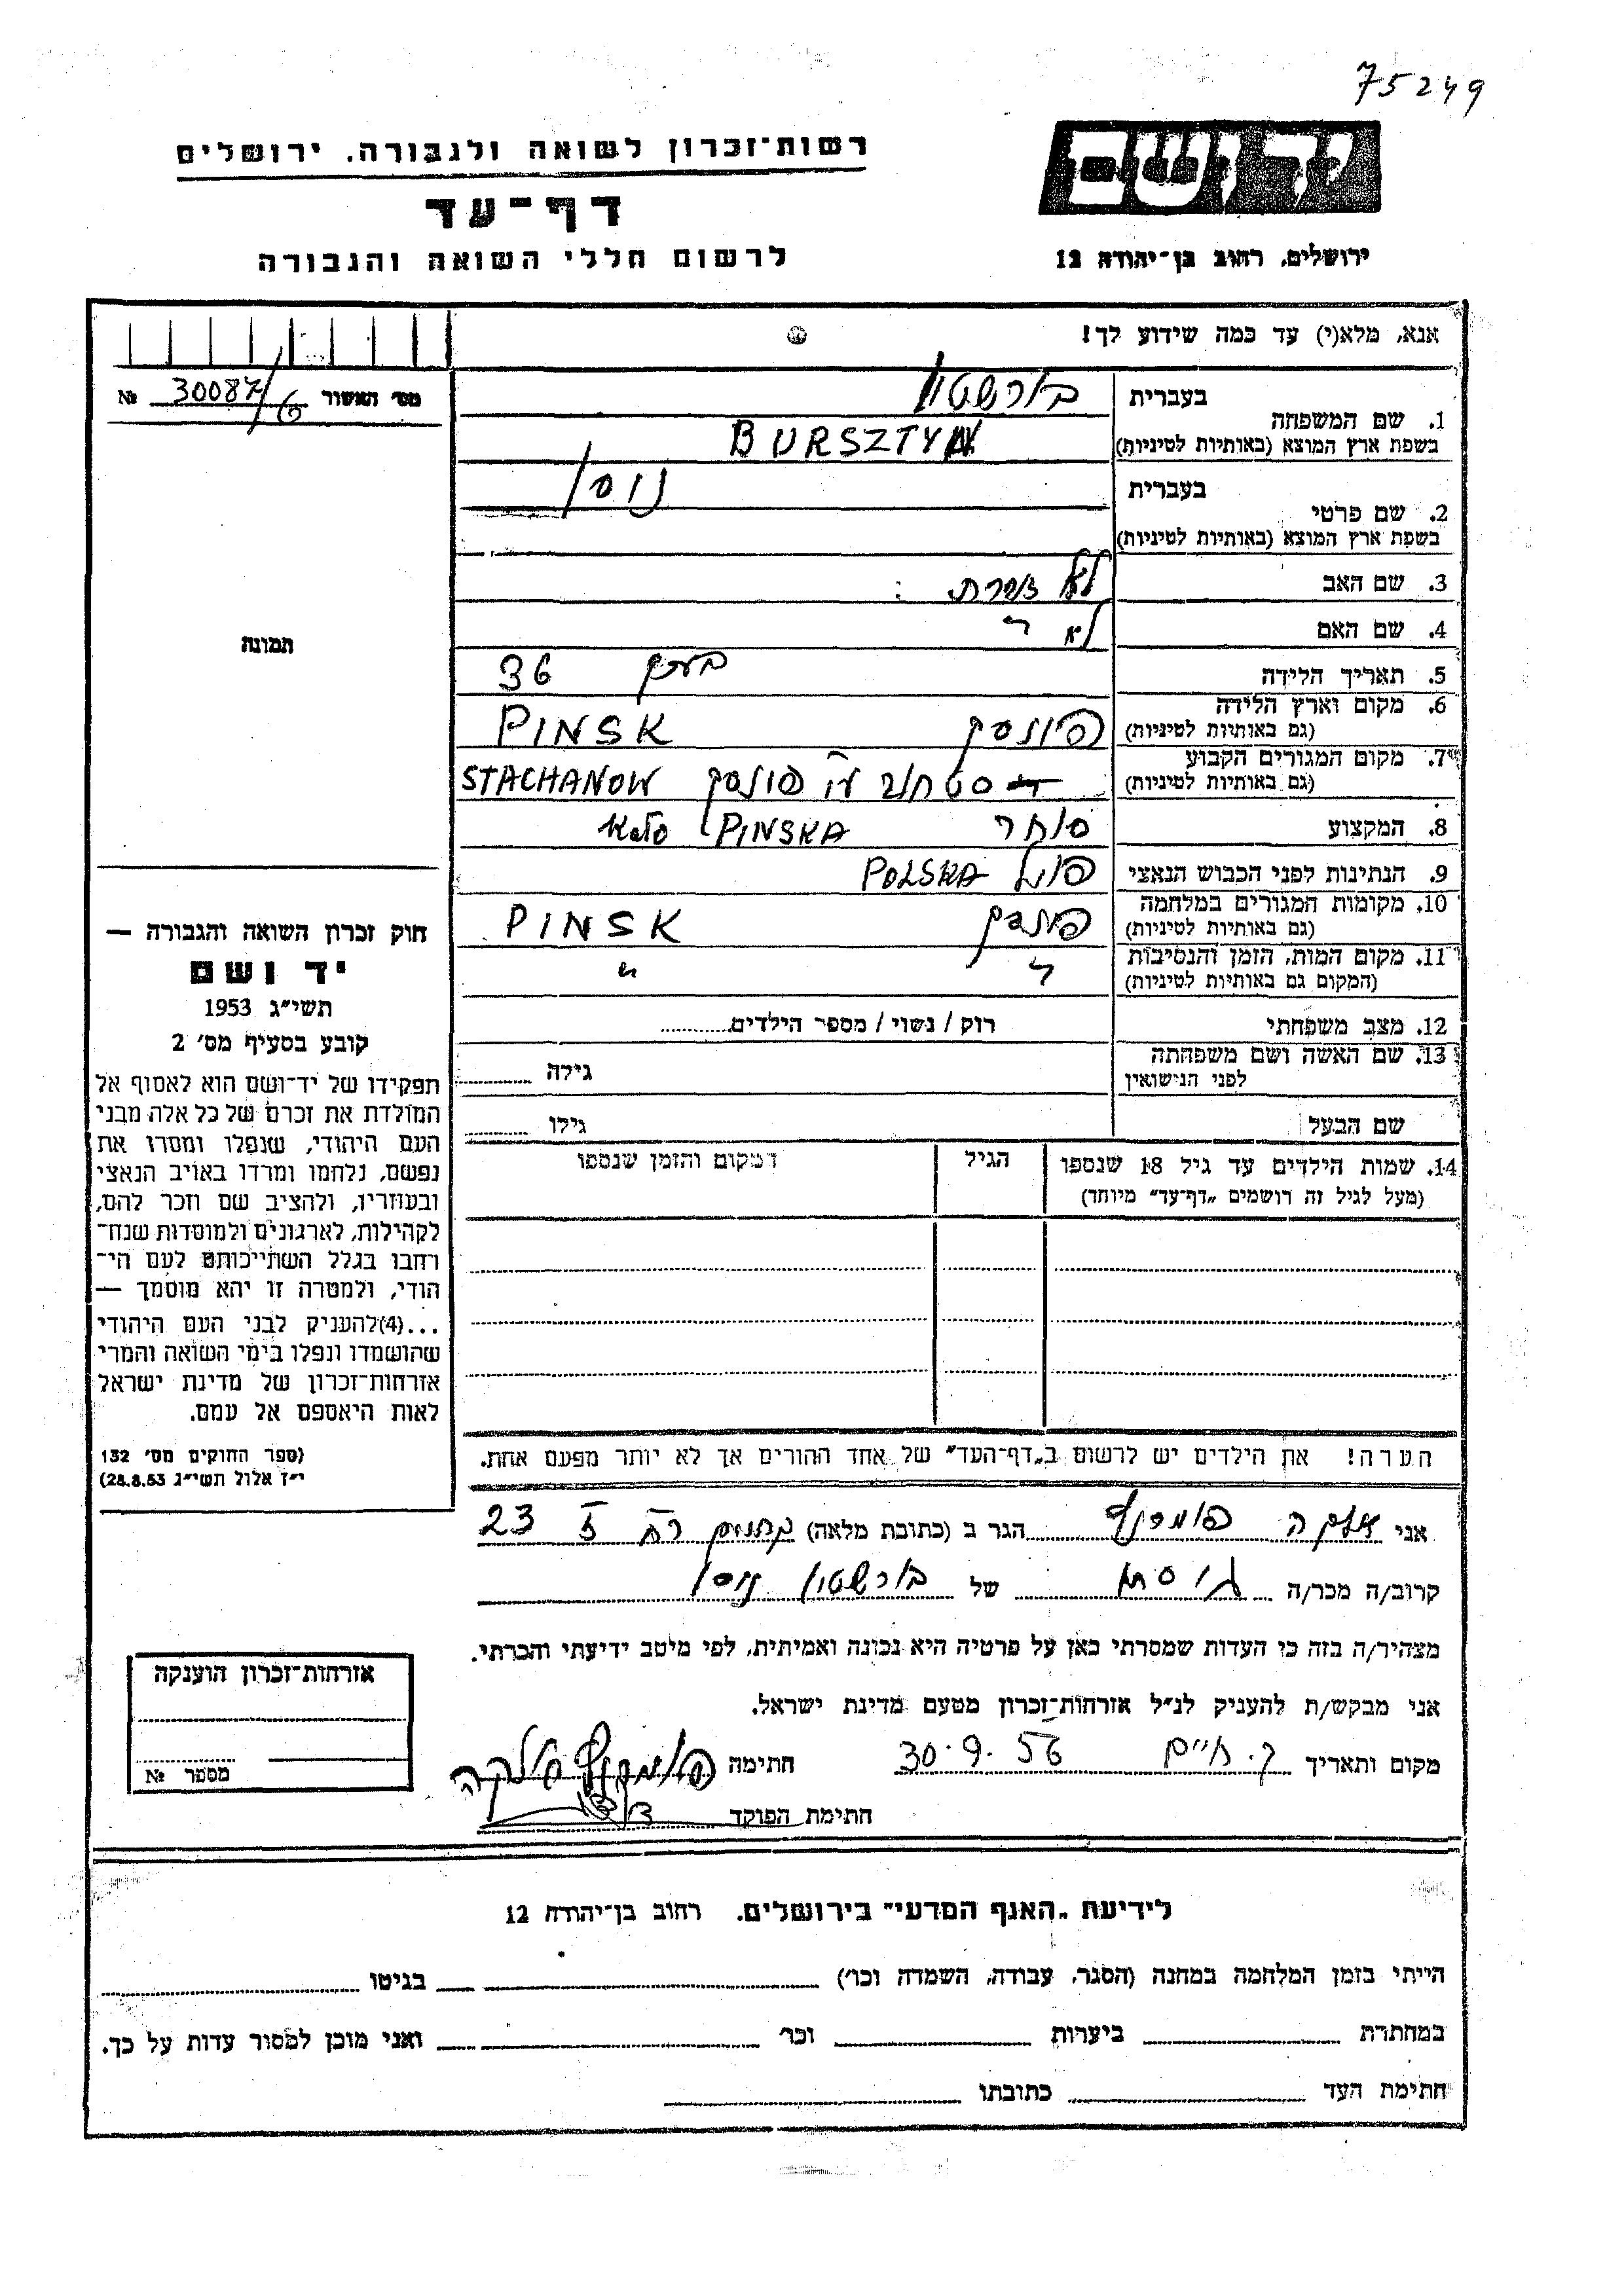 75249
רשות־זכרון לשואה ולגבורה, ירושלים
יד ושם
דף־עד
לרשום חללי השואה והגבורה
ירושלים, רחוב בן־יהודה 12
אנא, מלא(י) עד כמה שידוע לך!
מס׳ האשור 30087/6 №
1. שם המשפחה
בעברית בורשטין
בשפת ארץ המוצא (באותיות לטיניות) BURSZTYN
2. שם פרטי
בעברית ניסן
בשפת ארץ המוצא (באותיות לטיניות)
3. שם האב לא זוכרת
4. שם האם לא ז
תמונה
5. תאריך הלידה בערך 36
6. מקום וארץ הלידה
(גם באותיות לטיניות) פינסק PINSK
7. מקום המגורים הקבוע
(גם באותיות לטיניות) סטחוב ע״י פינסק STACHANOW
8. המקצוע סוחר PINSKA קולא
9. הנתינות לפני הכבוש הנאצי פולי POLSKA
10. מקומות המגורים במלחמה
(גם באותיות לטיניות) פינסק PINSK
11. מקום המות, הזמן והנסיבות
(המקום גם באותיות לטיניות) " "
12. מצב משפחתי רוק / נשוי / מספר הילדים
13. שם האשה ושם משפחתה
לפני הנישואין גילה
שם הבעל גילו
14. שמות הילדים עד גיל 18 שנספו הגיל המקום והזמן שנספו
(מעל לגיל זה רושמים „דף־עד״ מיוחד)
חוק זכרון השואה והגבורה —
יד ושם
תשי״ג 1953
קובע בסעיף מס׳ 2
תפקידו של יד־ושם הוא לאסוף אל
המולדת את זכרם של כל אלה מבני
העם היהודי, שנפלו ומסרו את
נפשם, נלחמו ומרדו באויב הנאצי
ובעוזריו, ולהציב שם וזכר להם,
לקהילות, לארגונים ולמוסדות שנח־
רבו בגלל השתייכותם לעם הי־
הודי, ולמטרה זו יהא מוסמך —
...(4)להעניק לבני העם היהודי
שהושמדו ונפלו בימי השואה והמרי
אזרחות־זכרון של מדינת ישראל
לאות היאספם אל עמם.
(ספר החוקים מס׳ 132
י״ז אלול תשי״ג 28.8.53)
הערה! את הילדים יש לרשום ב„דף־העד״ של אחד ההורים אך לא יותר מפעם אחת.
אני הגר ב (כתובת מלאה) 23
קרוב/ה מכר/ה גיסה של בורשטין ניסן
מצהיר/ה בזה כי העדות שמסרתי כאן על פרטיה היא נכונה ואמיתית, לפי מיטב ידיעתי והכרתי.
אני מבקש/ת להעניק לנ״ל אזרחות־זכרון מטעם מדינת ישראל.
מקום ותאריך ק. חיים 30.9.56 חתימה
חתימת הפוקד
אזרחות־זכרון הוענקה
מספר №
לידיעת „האגף המדעי״ בירושלים, רחוב בן־יהודה 12
הייתי בזמן המלחמה במחנה (הסגר, עבודה, השמדה וכו׳) בגיטו
במחתרת ביערות וכו׳ ואני מוכן למסור עדות על כך.
חתימת העד כתובתו